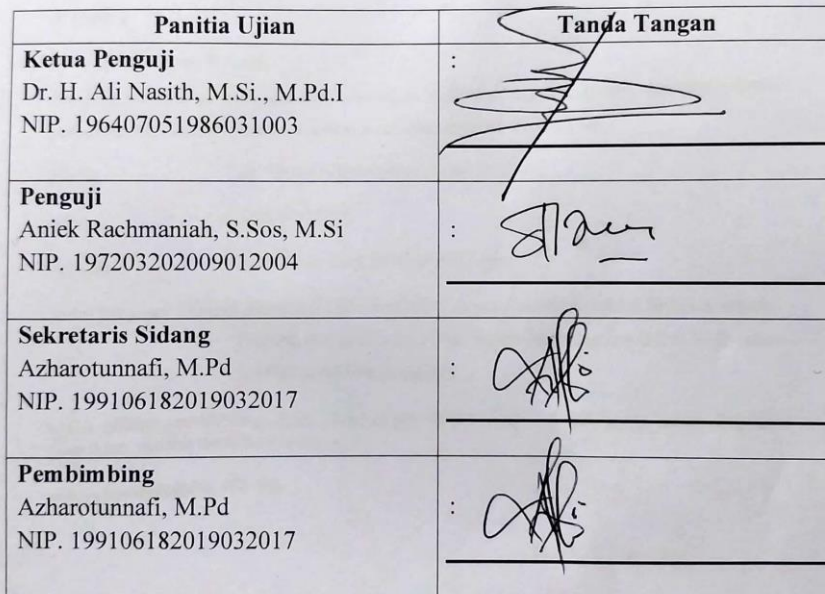 Panitia Ujian
Tanda Tangan
Ketua Penguji
:
Dr. H. Ali Nasith, M.Si., M.Pd.I
NIP. 196407051986031003
Penguji
Aniek Rachmaniah, S.Sos, M.Si
:
NIP. 197203202009012004
Sekretaris Sidang
Azharotunnafi, M.Pd
:
NIP. 199106182019032017
Pembimbing
Azharotunnafi, M.Pd
:
NIP. 199106182019032017